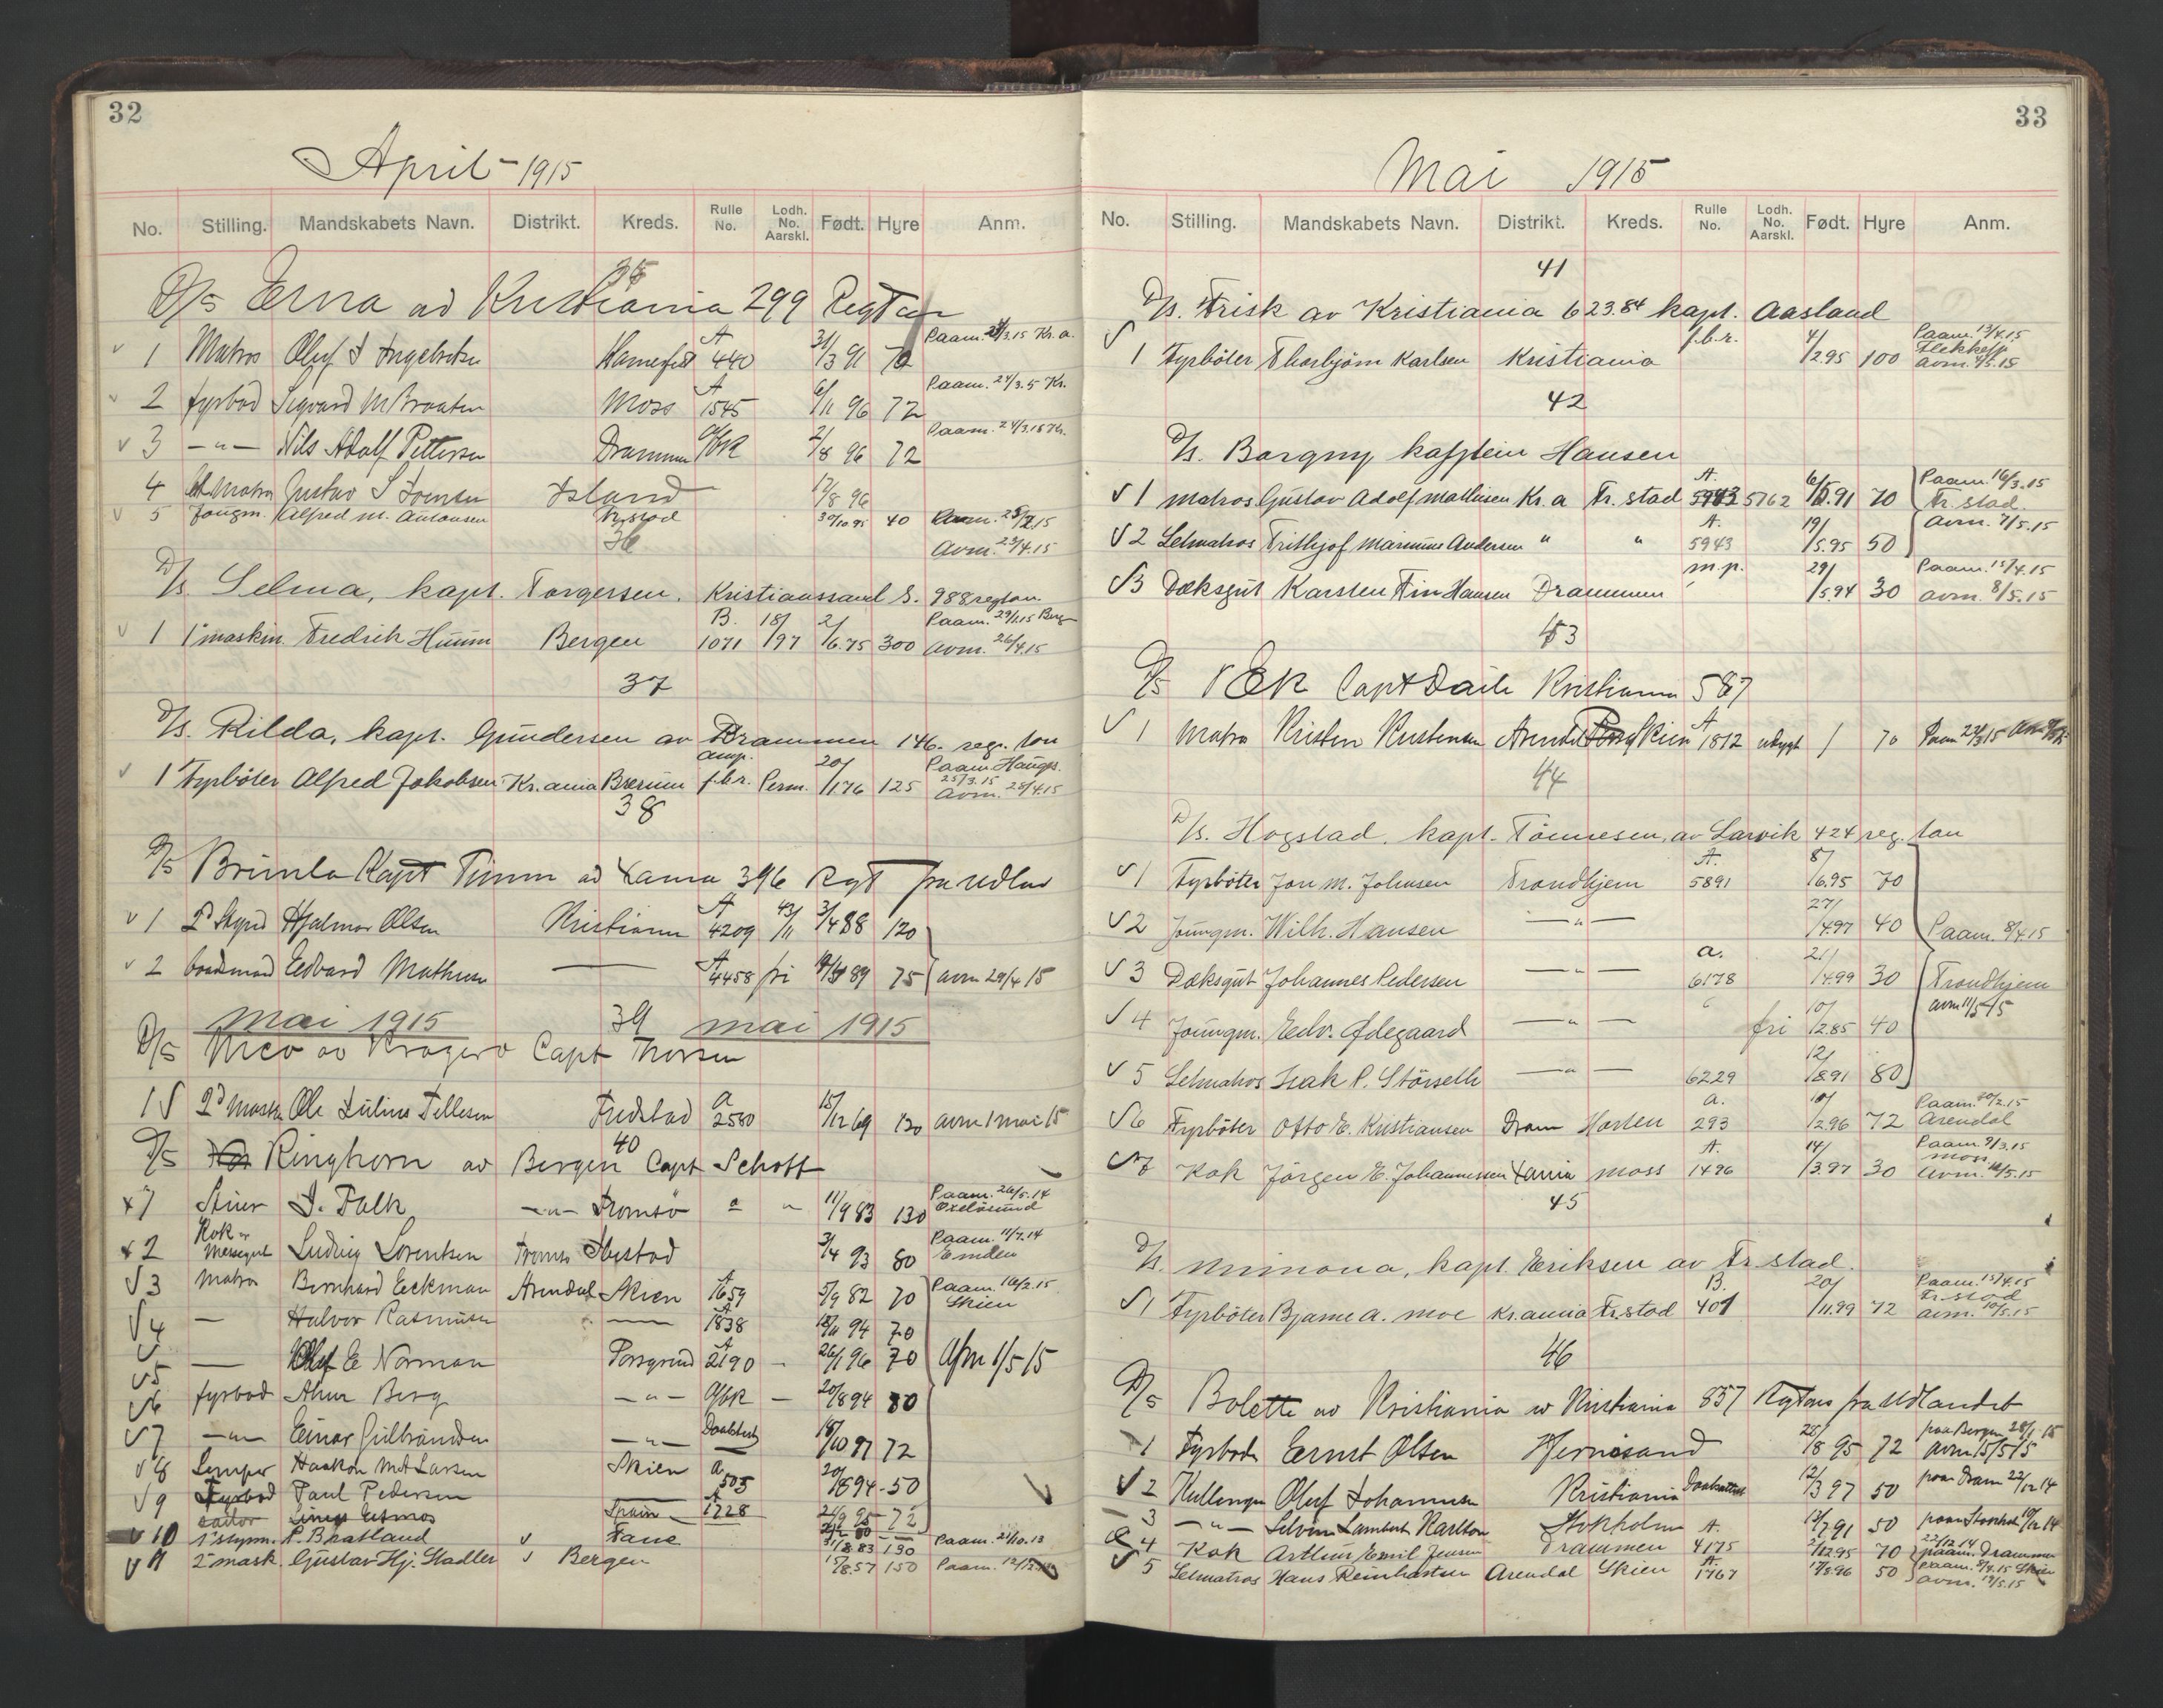 32
April - 1915
No. Stilling. Mandskabets Navn. Distrikt. Kreds. Rulle No. Lodh. No. Aarskl. Født. Hyre Anm.
35
D/S Erna ad Kristiania 299 RegTon
1 Matros Oluf I Ingebretsen A 440 31/3 91 72 Paam. 3.15 Kr.a.
2 fyrbød Sigvard M Braaten Moss A 1545 6/11 96 72 Paam. 24/3.5 Kr.
3 -"- Nils Adolf Pettersen Drammen 2/8 96 72 Paam. 24/3.15 Kr.
4 Matros Gustav S Island 17/8 96
5 Jongm. Alfred M. Fr.stad 30/10.95 40
36 Avm. 23/4.15
D/s. Selma, kapt. Torgersen. Kristianssand S. 988 regton.
1 1ste maskin. Fredrik Humm Bergen B. 1071 18/97 2/6.75 300 Paam. 29/1.15 Berg Avm. 26/4.15
37
D/s. Rilda, kapt. Gundersen av Drammen 146. reg. ton
1 Fyrböter Alfred Jakobsen Kr.ania Bærum f.b.r. Perm. 20/1.76 125 Paam. Hauges. 25/3.15 Avm. 28/4.15
38
D/S Brünla Kapt Timm ad Xania 396 RgT fra Udlan
1 2d Styrd Hjalmar Olsen Kristiania A 4209 43/11 3/4 88 120
2 baadsmand Edvard Mathisen A 4458 fri 89 75 avm 29/4 15
mai 1915 39 mai 1915
D/S av Kragerø Capt
1 2d Mask Ole Julius Tellesen Fredstad a 2580 15/12 69 120 avm 1 mai 15
40
D/S Ringhorn av Bergen Capt Schott
1 Stuer J. Falk -"- Tromsø a " 11/9 83 130 Paam. 26/5.14 Oxelösund
2 Kok og Messegut Ludvig Lorentsen Tromsø Ibestad 3/4 93 80 Paam. 11/7.14 Emden
3 Matros Bernhard Eeckman Arendal Skien A 1659 5/9 82 70 Paam. 16/2.15 Skien
4 — Halvor Rasmusen — A 1838 94 70
5 — Oluf E Norman Porsgrund A 2190 - 26/1 96 70 Afm 1/5 15
6 fyrbød Berg -"- — 20/8 94 80
7 -"- Einar Gulbrandsen -"- 18/10 97 72
8 Lemper Haakon Larsen Skien a 505 20/8 94 - 50
9 Fyrbød Paul Pedersen A 1728 21/9 95 72
10 1ste styrm. P. Bratland Fane 31/8 83 130 Paam. 21/10.13
11 2 mask. Gustav Hj. Stadler Bergen 15/8.57 150 Paam. 12/12
33
Mai 1915
No. Stilling. Mandskabets Navn. Distrikt. Kreds. Rulle No. Lodh. No. Aarskl. Født. Hyre Anm.
41
D/s. Frisk av Kristiania 623.84 kapt. Aasland
1 Fyrböter Thorbjörn Karlsen Kristiania f.b.r. 4/12.95 100 Paam. 13/4.15 Flekkefj. avm. 4/5.15
42
D/s. Borgny kaptein Hansen
1 matros Gustav Adolf Mathisen Kr.a Fr.stad A. 5943 5762 91 70 Paam. 16/3.15 Fr.stad.
2 Letmatros Frithjof Marinius Andersen " " A. 5943 19/5.95 50 avm. 7/5.15
3 Dæksgut Karsten Fin Hansen Drammen m.p. 29/5.94 30 Paam. 15/4.15 avm. 8/5.15
43
D/S EK Capt Daile Kristiania 587
1 Matros Kristen Kristensen Arendal Skien A 1812 / 70
44
D/s. Hogstad, kapt. Tönnesen, av Larvik 424 reg. ton
1 Fyrböter Jon M. Johnsen Trondhjem A. 5891 8/6.95 70
2 Joungm. Wilh. Hansen — " — 27/4.97 40 Paam. 8/4.15
3 Dæksgut Johannes Pedersen — " — a. 6178 21/4.99 30 Trondhjem
4 Joungm. Edv. Ødegaard — " — fri 10/2.85 40 avm 11/5 15
5 Letmatros Isak P. Störseth — " — 6229 12/8.91 80
6 Fyrböter Otto E. Kristiansen Dram Horten a. 293 10/2.96 72 Paam. 20/2.15 Arendal
7 Kok Jörgen E. Johannessen Xania Moss A. 1496 14/3.97 30 Paam. 9/3.15 moss avm. 12/5.15
45
D/s. Mimona, kapt. Eriksen av Fr.stad.
1 Fyrböter Bjarne A. Moe Kr.ania Fr.stad B. 401 20/11.99 72 Paam. 15/4.15 Fr.stad avm. 10/5.15
46
D/S Bolette av Kristiania 857 RgTons fra Udlandet
1 Fyrbøde Ernst Olsen Hernösand 28/8 95 72 paa Bergen 28/1 15 avm 15/5 15
2 Oluf Johannesen Kristiania 12/3 97 50 paa Dram 22/12 14
3 -"- Selvin Lambert Karlson Stokholm 12/7 91 50 10/12 14
4 Kok Arthur Emil Jensen Drammen A. 4175 2/12.95 70 22/12.14 paam. Drammen
5 Letmatros Hans Reinhartsen Arendal Skien A. 1767 17/8.96 50 Paam. 8/4.15 Skien avm. 19/5.15